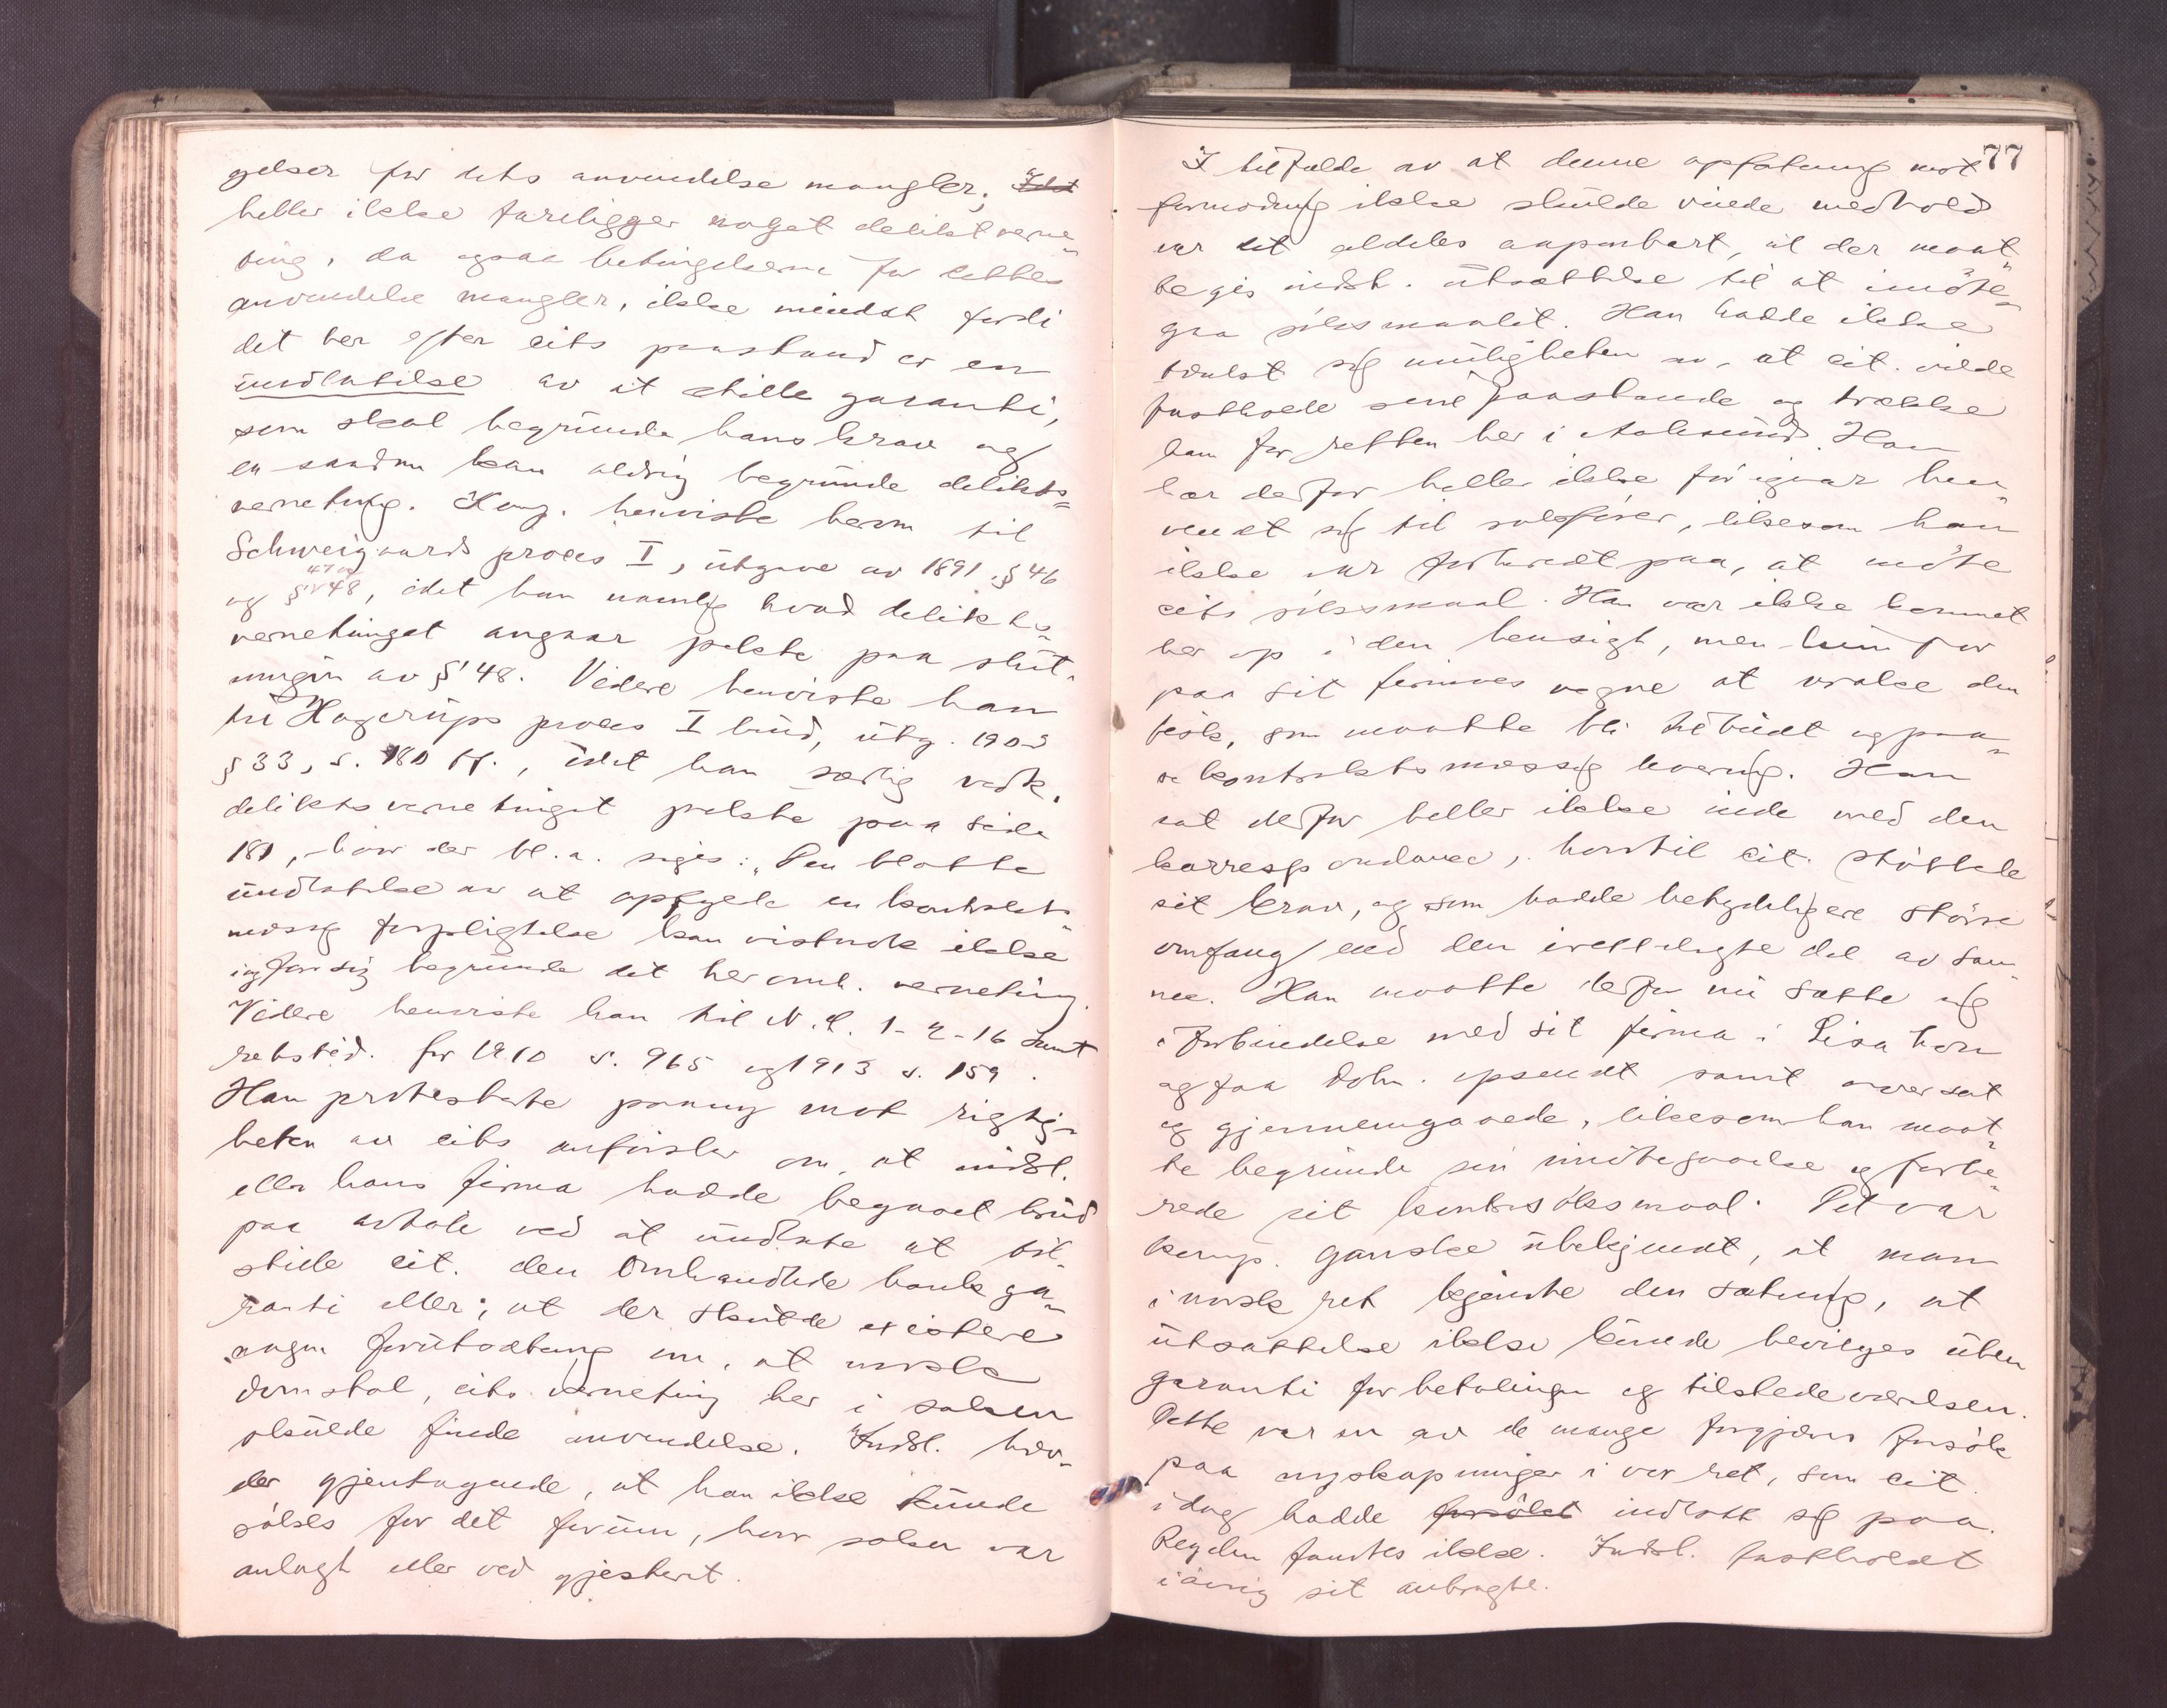 gelser for dets anvendelse mangler, Idet
heller ikke foreligger noget deliktverne-
ting, da ogsaa betingelserne for dettes
anvendelse mangler, ikke mindst fordi
det her efter cits paastand er en
undlatelse av at stille garanti,
som skal begrunde hans krav og
en saadan kan aldrig begrunde delikts-
verneting. Komp. henviste herom til
Schweigaards proces I, utgave av 1891, § 46
47 og
og § 48, idet han navnlig hvad delikts-
vernetinget angaar pekte paa slut-
ningen av § 48. Videre henviste han
til Hagerups proces I bind, utg. 1903
§ 33, s. 180 ff., idet han særlig vedk.
deliktsvernetinget pekte paa side
181, hvor der bl. a. siges: "Den blotte
undlatelse av at opfylde en kontrakts-
mæssig forpligtelse kan vistnok ikke
i og for sig begrunde det her omh. verneting.
Videre henviste han til N. L. 1-2-16 samt
retstid. for 1910 s. 965 og 1913 s. 159.
Han protesterte paany mot rigtig-
heten av cits anførsler om, at indst.
eller hans firma hadde begaaet brud
paa avtale ved at undlate at til-
stille cit. den omhandlede bank ga-
ranti eller, at der skulde existere
nogen forutsætning om, at norsk
domstol, cits verneting her i saken
skulde finde anvendelse. Indst. hæv-
der gjentagende, at han ikke kunde
søkes for det forum, hvor saken var
anlagt eller ved gjesteret.
77
I tilfælde av at denne opfatning mot
formodning ikke skulde vinde medhold
var det aldeles aapenbart, at der maat-
te gis indst. utsættelse til at imøte-
gaa søksmaalet. Han hadde ikke
tænkt sig muligheten av, at cit. vilde
fastholde sine paastande og trække
ham for retten her i Aalesund. Han
har derfor heller ikke før igaar hen-
vendt sig til sakfører, likesom han
ikke var forberedt paa, at møte
cits søksmaal. Han var ikke kommet
her op i den hensigt, men kun for
paa sit firmaes vegne at vrake den
fisk, som maatte bli tilbudt og paa-
se kontraktsmæssig levering. Han
sat derfor heller ikke inde med den
korrespondance, hvortil cit. støttede
sit krav, og som hadde betydeligere større
omfang end den irettelagte del av sam-
me. Han maatte derfor nu sætte sig
i forbindelse med sit firma i Lisabon
og faa dokn. opsendt samt oversat
og gjennemgaaede, likesom han maat-
te begrunde sin imøtegaaelse og forbe-
rede sit kontrasøksmaal. Det var
komp. ganske ubekjendt, at man
i norsk ret kjendte den sætning, at
utsættelse ikke kunde bevilges uten
garanti for betalingen og tilstedeværelsen.
Dette var en av de mange forgjæves forsøk
paa nyskapninger i vor ret, som cit.
idag hadde forsøkt indlatt sig paa.
Regelen fandtes ikke. Indst. fastholdt
iøvrig sit anbragte.